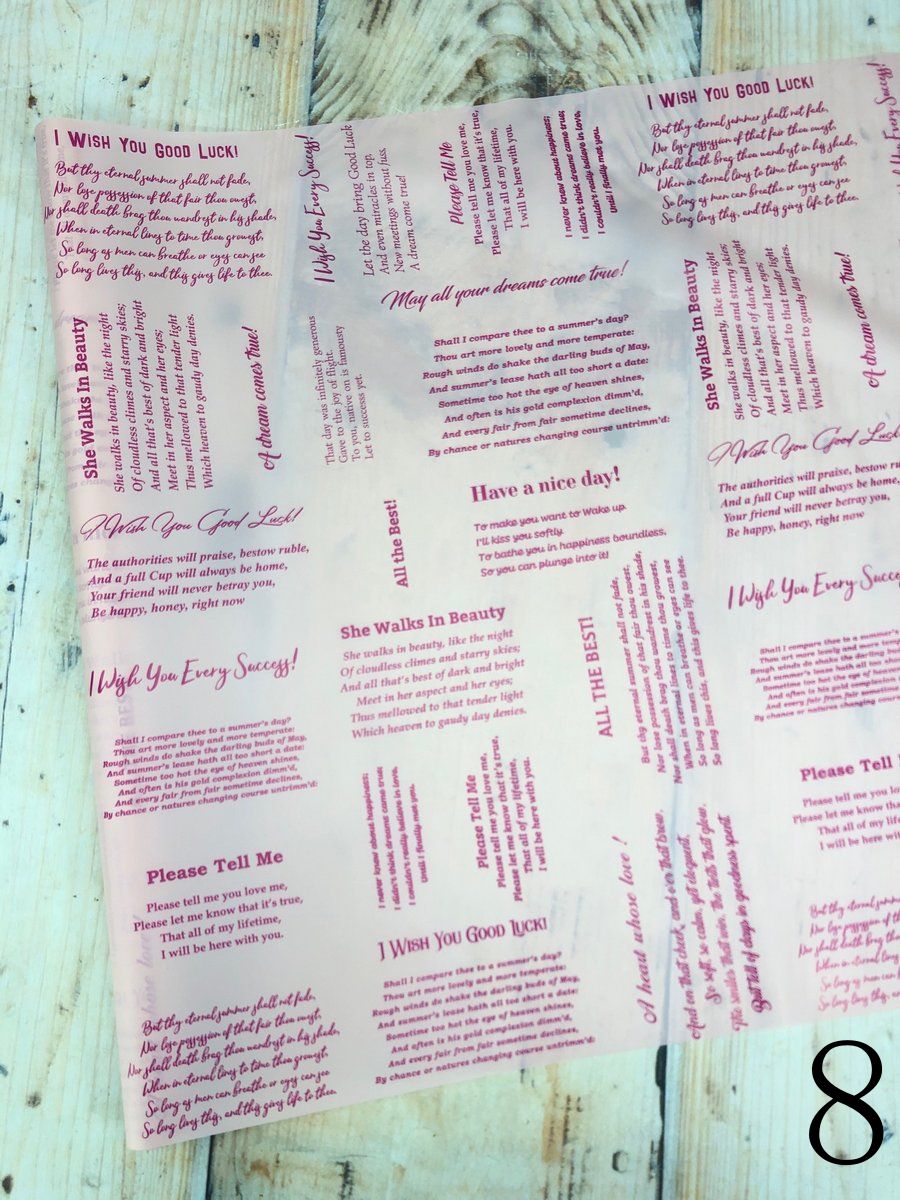 I WISH YOU GOOD LUCK!
But thy eternal summer shall not fade,
Nor lose possession of that fair thou owest,
Nor shall death brag thou wandrest in his shade,
When in eternal lines to time thou growest,
So long as men can breathe or eyes can see
So long lives this, and this gives life to thee.
I Wish You Every Success!
Let the day bring Good Luck
And even miracles in top,
New meetings without fuss,
A dream come true!
Please Tell Me
Please tell me you love me,
Please let me know that it's true,
That all of my lifetime,
I will be here with you.
I never knew about happiness;
I didn't think dreams came true;
I couldn't really believe in love,
Until I finally met you.
I WISH YOU GOOD LUCK!
But thy eternal summer shall not fade,
Nor lose possession of that fair thou owest,
Nor shall death brag thou wandrest in his shade,
When in eternal lines to time thou growest,
So long as men can breathe or eyes can see
So long lives this, and this gives life to thee.
Every Success!
She Walks In Beauty
She walks in beauty, like the night
Of cloudless climes and starry skies;
And all that's best of dark and bright
Meet in her aspect and her eyes;
Thus mellowed to that tender light
Which heaven to gaudy day denies.
A dream comes true!
That day was infinitely generous
Gave to the joy of flight.
To you, native on is famousty
Let to successs yet.
May all your dreams come true!
Shall I compare thee to a summer's day?
Thou art more lovely and more temperate:
Rough winds do shake the darling buds of May,
And summer's lease hath all too short a date:
Sometime too hot the eye of heaven shines,
And often is his gold complexion dimm'd,
And every fair from fair sometime declines,
By chance or natures changing course untrimm'd:
She Walks In Beauty
She walks in beauty, like the night
Of cloudless climes and starry skies;
And all that's best of dark and bright
Meet in her aspect and her eyes;
Thus mellowed to that tender light
Which heaven to gaudy day denies.
A dream comes true!
I Wish You Good Luck!
The authorities will praise, bestow ruble,
And a full Cup will always be home,
Your friend will never betray you,
Be happy, honey, right now
All the Best!
Have a nice day!
To make you want to Wake up
I'll kiss you softly.
To bathe you in happiness boundless,
So you can plunge into it!
I Wish You Good Luck
The authorities will praise, bestow ru
And a full Cup will always be home,
Your friend will never betray you,
Be happy, honey, right now
I Wish You Every Success!
She Walks In Beauty
She walks in beauty, like the night
Of cloudless climes and starry skies;
And all that's best of dark and bright
Meet in her aspect and her eyes;
Thus mellowed to that tender light
Which heaven to gaudy day denies.
ALL THE BEST!
But thy eternal summer shall not fade,
Nor lose possession of that fair thou owest,
Nor shall death brag thou wandrest in his shade,
When in eternal lines to time thou growest,
So long as men can breathe or eyes can see
So long lives this, and this gives life to thee.
I Wish You Every Succe
Shall I compare thee to a summer's
Thou art more lovely and more tempera
Rough winds do shake the darling buds
And summer's lease hath all too short
Sometime too hot the eye of heaven
And often is his gold complexion
And every fair from fair sometime
By chance or natures changing course
Shall I compare thee to a summer's day?
Thou art more lovely and more temperate:
Rough winds do shake the darling buds of May,
And summer's lease hath all too short a date:
Sometime too hot the eye of heaven shines,
And often is his gold complexion dimm'd,
And every fair from fair sometime declines,
By chance or natures changing course untrimm'd:
I never knew about happiness;
I didn't think dreams came true;
I couldn't really believe in love,
Until I finally met you.
Please Tell Me
Please tell me you love me,
Please let me know that it's true,
That all of my lifetime,
I will be here with you.
Please Tell
Please tell me you lo
Please let me know tha
That all of my life
I will be here wit
Please Tell Me
Please tell me you love me,
Please let me know that it's true,
That all of my lifetime,
I will be here with you.
I WISH YOU GOOD LUCK!
Shall I compare thee to a summer's day?
Thou art more lovely and more temperate:
Rough winds do shake the darling buds of May,
And summer's lease hath all too short a date:
Sometime too hot the eye of heaven shines,
And often is his gold complexion dimm'd,
And every fair from fair sometime declines,
By chance or natures changing course untrimm'd:
A head whose love!
And on that cheek, and o'er that brow,
So soft, so calm, yet eloquent,
The smiles that win, the tints that glow,
But tell of days in goodness spent
But thy eternal summ
Nor lose possession of
Nor shall death brag tho
When in eternal lines
So long as men can
So long lives this, an
But thy eternal summer shall not fade,
Nor lose possession of that fair thou owest,
Nor shall death brag thou wandrest in his shade,
When in eternal lines to time thou growest,
So long as men can breathe or eyes can see
So long lives this, and this gives life to thee.
8